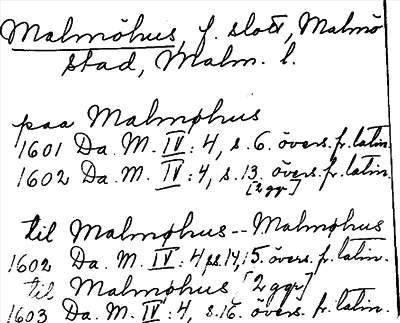 Malmöhus, f. slott, Malmö
stad, Malm. l.
paa Malmøhus
1601 Da. M. IV: 4, s. 6. övers. fr. latin.
1602 Da. M. IV: 4, s. 13. övers. fr. latin.
[2 ggr]
til Malmøhus -- Malmøhus
1602 Da. M. IV: 4, ss. 14, 15. övers. fr. latin.
til Malmøhus [2 ggr]
1603 Da. M. IV: 4, s. 16. övers. fr. latin.